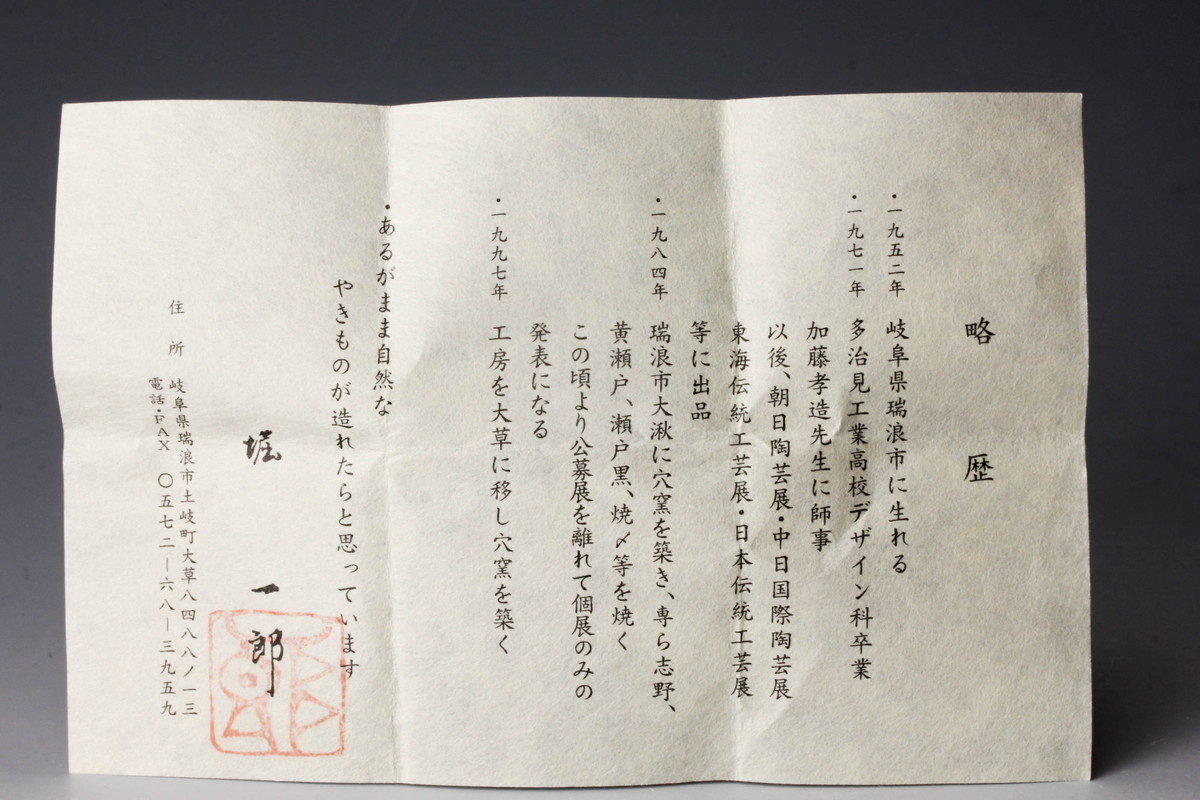 略歴
・一九五二年 岐阜県瑞浪市に生れる
・一九七一年 多治見工業高校デザイン科卒業
加藤孝造先生に師事
以後、朝日陶芸展・中日国際陶芸展
東海伝統工芸展・日本伝統工芸展
等に出品
・一九八四年 瑞浪市大湫に穴窯を築き、専ら志野、
黄瀬戸、瀬戸黒、焼〆等を焼く
この頃より公募展を離れて個展のみの
発表になる
・一九九七年 工房を大草に移し穴窯を築く
・あるがまま自然な
やきものが造れたらと思っています
堀一郎
住所 岐阜県瑞浪市土岐町大草八四八八ノ一三
電話・FAX 〇五七二―六八―三九五九